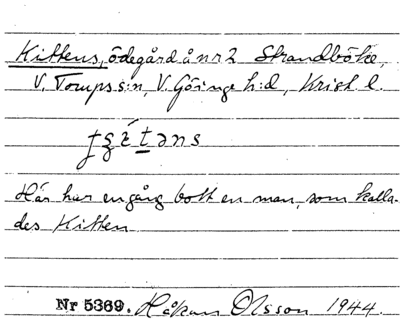 Kittens, ödegård å nr 2 Strandböke,
V. Torups s:n, V. Göinge h:d, Krist l.
Här har en gång bott en man, som kalla-
des Kitten
Nr 5369. Håkan Olsson 1944.